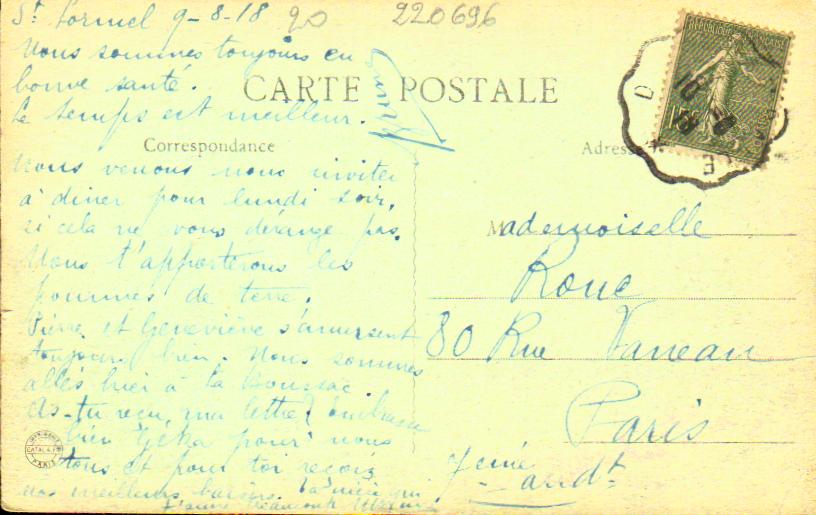 St Lormel 9-8-18 20 220696
Nous sommes toujours en
bonne santé.
Le temps est meilleur.
CARTE POSTALE
Correspondance
Adresse
Nous venons nous inviter
à diner pour lundi soir,
si cela ne vous dérange pas.
Nous t'apporterons les
pommes de terre.
Pierre et Geneviève s'amusent
toujours bien. Nous sommes
allés hier à la Boussac
As-tu reçu ma lettre? Embrasse
bien Géka pour nous
tous et pour toi reçois
nos meilleurs baisers. Ta nièce qui
t'aime beaucoup
Mademoiselle
Rouc
80 Rue Vaneau
Paris
7eme arrdt